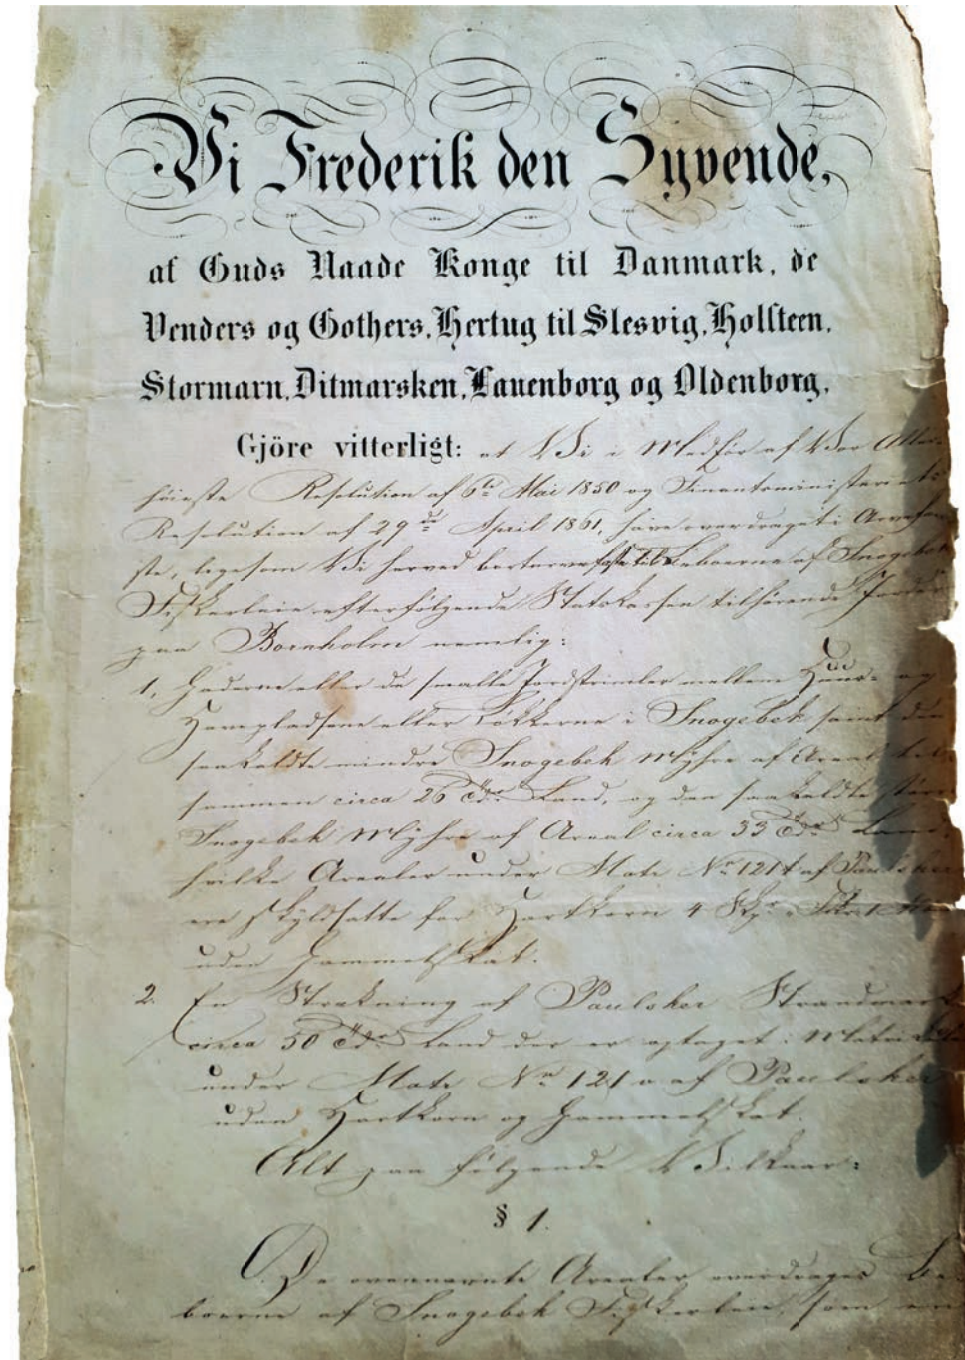 Vi Frederik den Syvende,
af Guds Naade Konge til Danmark, de
Venders og Gothers, Hertug til Slesvig, Holsteen,
Stormarn, Ditmarsken, Lauenborg og Oldenborg,
Gjöre vitterligt: at Vi i Medför af Vor Aller-
höieste Resolution af 6te Mai 1850 og Finantsministeriets
Resolution af 29de April 1861, have overdraget i Arvefæ-
ste, ligesom Vi herved bortarvefæste til Beboerne af Snogebek
Fiskerleie efterfölgende Statskassen tilhörende Jorder
paa Bornholm nemlig:
1, Gaderne eller de smalle Jordstrimler mellem Huus- og
Havepladsene eller Lökkerne i Snogebek samt den
saakaldte mindre Snogebek Myhre af Areal
sammen circa 26 Tdr Land, og den saakaldte
Snogebek Myhre af Areal circa 33 Tdr Land,
hvilke Arealer under Matr No 121 af Paulsker
ere skyldsatte for Hartkorn 4 Skp
uden Gammelskat.
2. En Strækning af Paulsker Strandmark
circa 50 Tdr Land der er optaget i Matriklen
under Matr No 121 a af Paulsker
uden Hartkorn og Gammelskat.
Alt paa fölgende Vilkaar:
§ 1.
De ovennævnte Arealer overdrages Be-
boerne af Snogebek Fiskerleie, som en